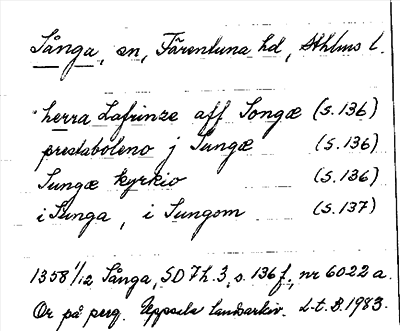 Sånga, sn, Färentuna hd, Sthlms l.
herra Lafrinze aff Songæ (s. 136)
prestaboleno j Sungæ (s. 136)
Sungæ kyrkio (s. 136)
i Sunga, i Sungom (s. 137)
1358 1/12 Sånga, SD 7 h. 3, s. 136 f, nr 6022 a.
Or på perg. Uppsala landsarkiv. L-t. B. 1983.